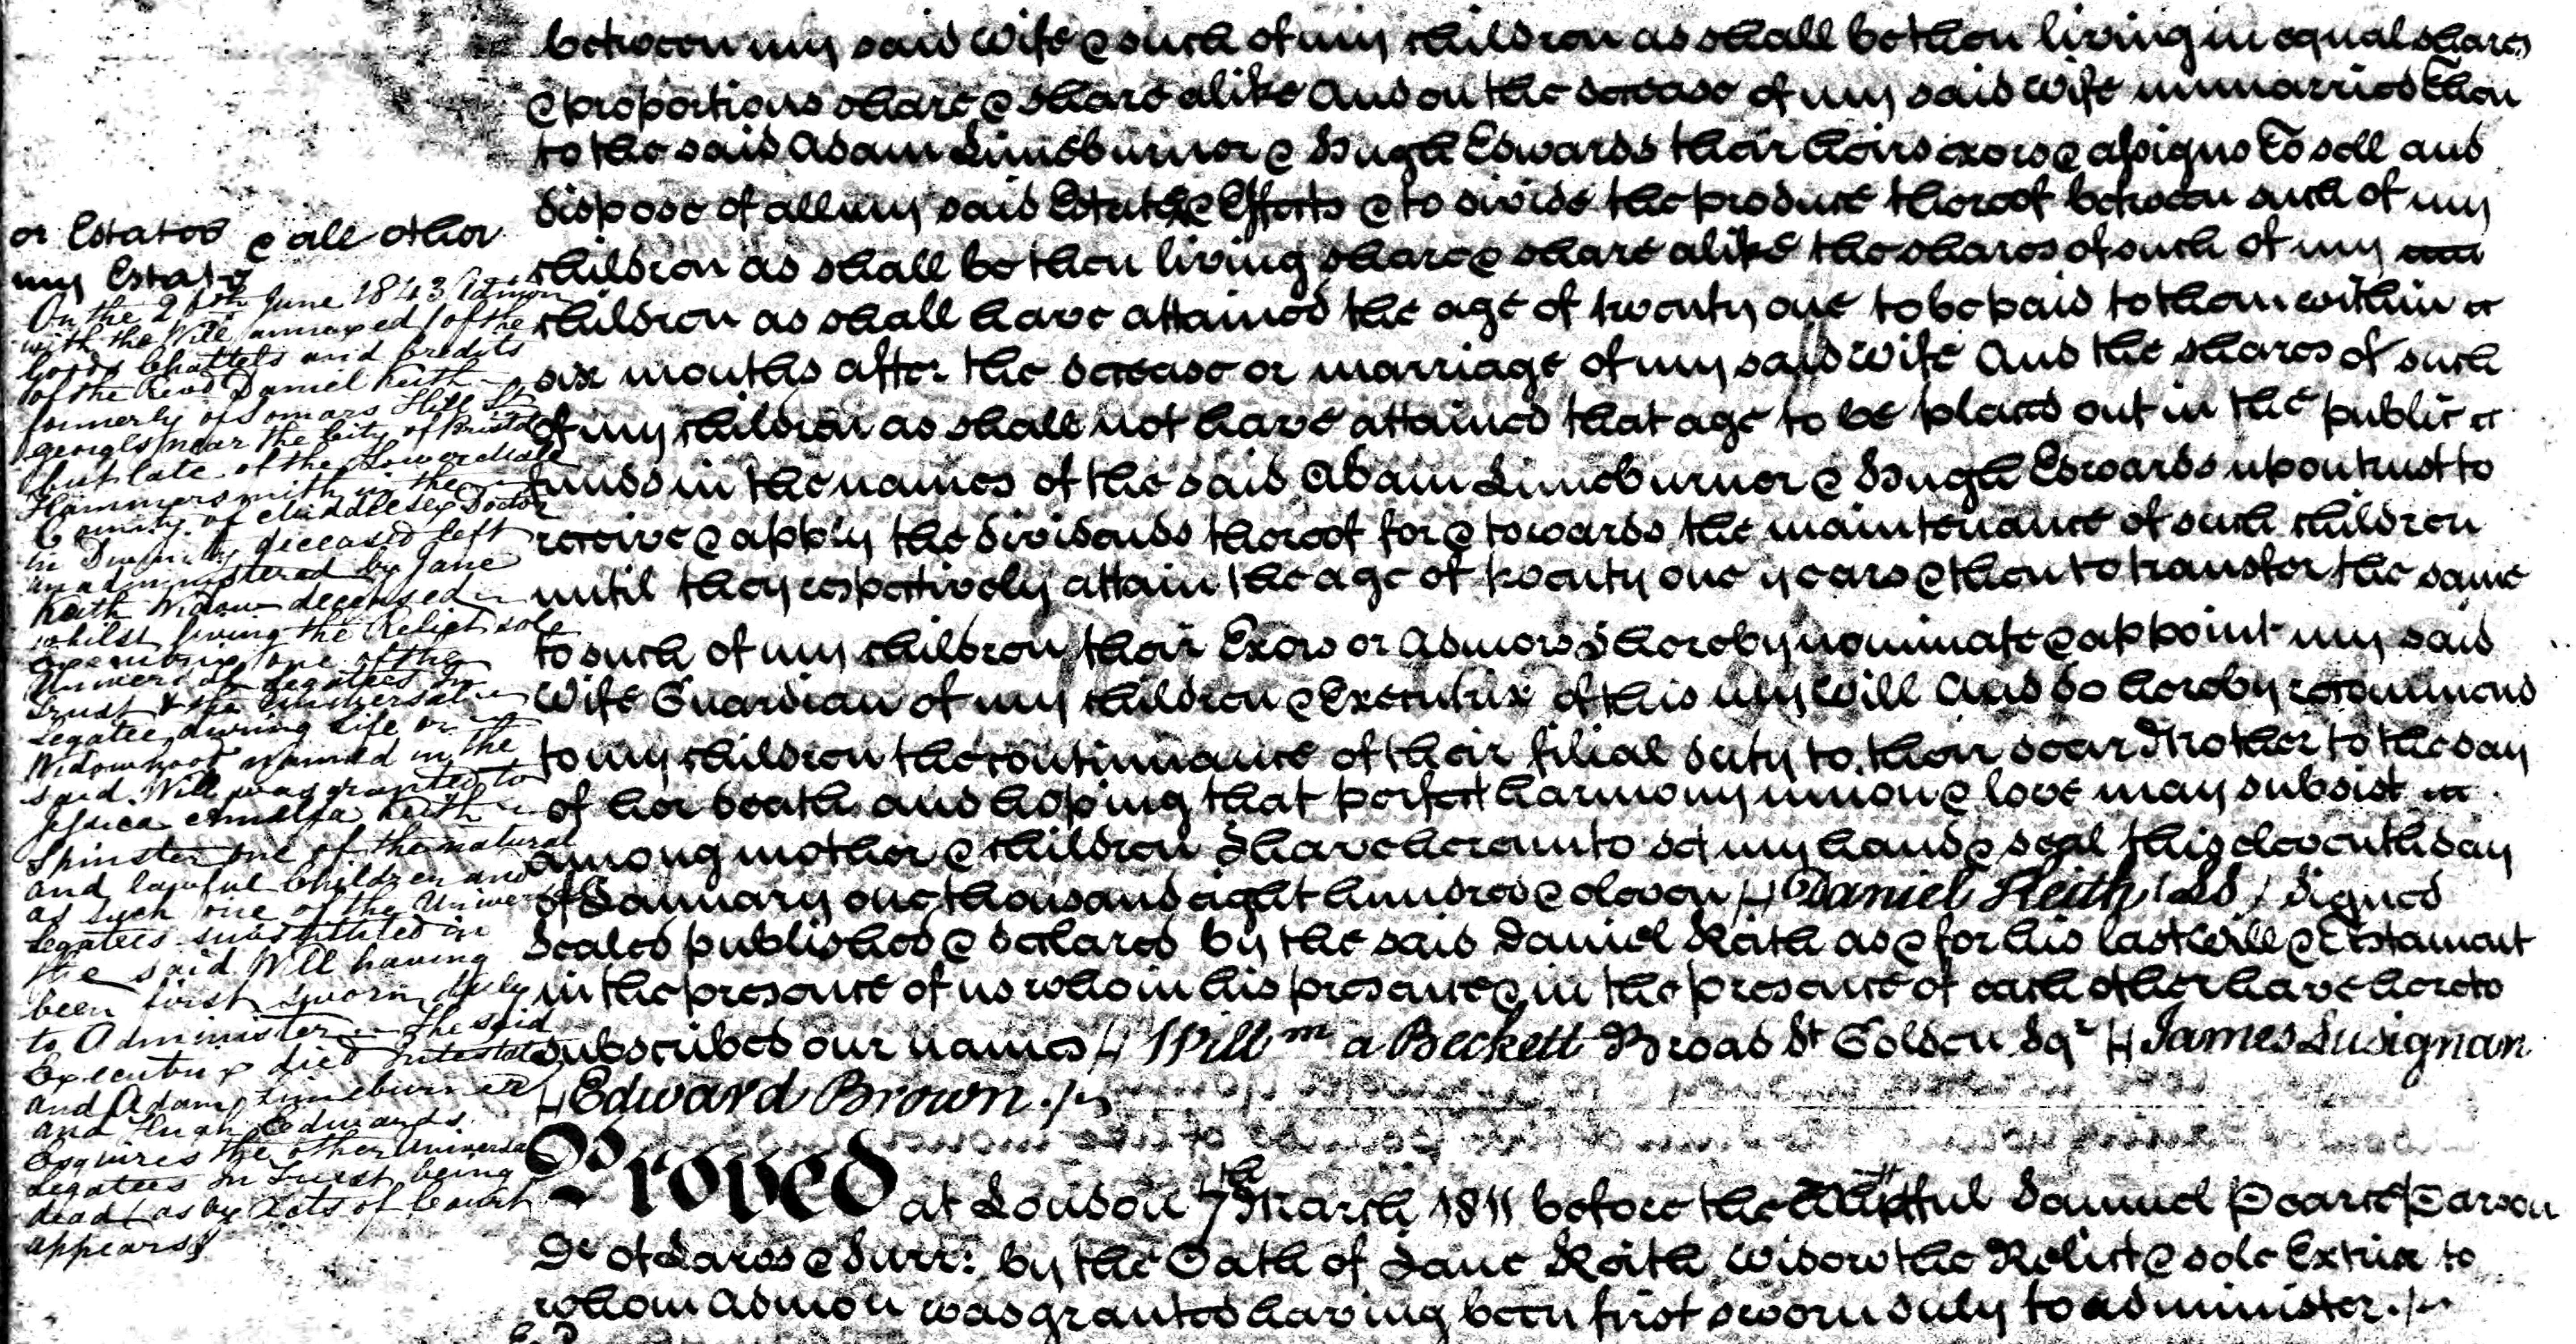 between my said Wife & such of my children as shall be then living in equal shares
& proportions share & share alike And on the decease of my said Wife unmarried Then
to the said Adam Lineburner & Hugh Edwards their heirs exors & assigns To sell and
dispose of all my said Estate & Effects & to divide the produce thereof between such of my
children as shall be then living share & share alike the shares of such of my
children as shall have attained the age of twenty one to be paid to them within
six months after the decease or marriage of my said Wife And the shares of such
of my children as shall not have attained that age to be placed out in the public
funds in the names of the said Adam Lineburner & Hugh Edwards upon trust to
receive & apply the dividends thereof for & towards the maintenance of such children
until they respectively attain the age of twenty one years & then to transfer the same
to such of my children their Exors or Admors I hereby nominate & appoint my said
Wife Guardian of my children & Executrix of this my Will And do hereby recommend
to my children the continuance of their filial duty to their dear Mother to the day
of her death and hoping that perfect harmony union & love may subsist
among mother & children I have hereunto set my hand & seal this eleventh day
of January one thousand eight hundred & eleven // Daniel Keith (LS) Signed
Sealed published & declared by the said Daniel Keith as & for his last Will & Testament
in the presence of us who in his presence & in the presence of each other have hereto
subscribed our names // Willm a Beckett Broad St Golden Sqr // James Lusignan
// Edward Brown ./.
Proved at London 7th March 1811 before the Worshipful Samuel Pearce Parson
Dr of Laws & Surr: by the Oath of Jane Keith Widow the Relict & sole Extrix to
whom admon was granted having been first sworn duly to administer ./.
or Estates & all other
my Estate
On the 26th June 1843 Admon
with the Will annexed of the
Goods Chattels and Credits
of the Revd Daniel Keith
formerly of Somars Hill St
georges near the City of Bristol
but late of the Lower Mall
Hammersmith in the
County of Middlesex Doctor
in Divinity deceased left
unadministered by Jane
Keith Widow deceased
whilst living the Relict sole
Executrix one of the
Universal Legatees in
Trust & the Universal
Legatee during Life or
Widowhood named in the
said Will was granted to
Jessica Amelia Keith
Spinster one of the natural
and lawful Children and
as such one of the Universal
Legatees substituted in
the said Will having
been first sworn duly
to Administer The said
Executrix died Intestate
and Adam Lineburner
and Hugh Edwards
Esquires the other Universal
Legatees In Trust being
dead as by Acts of Court
appears